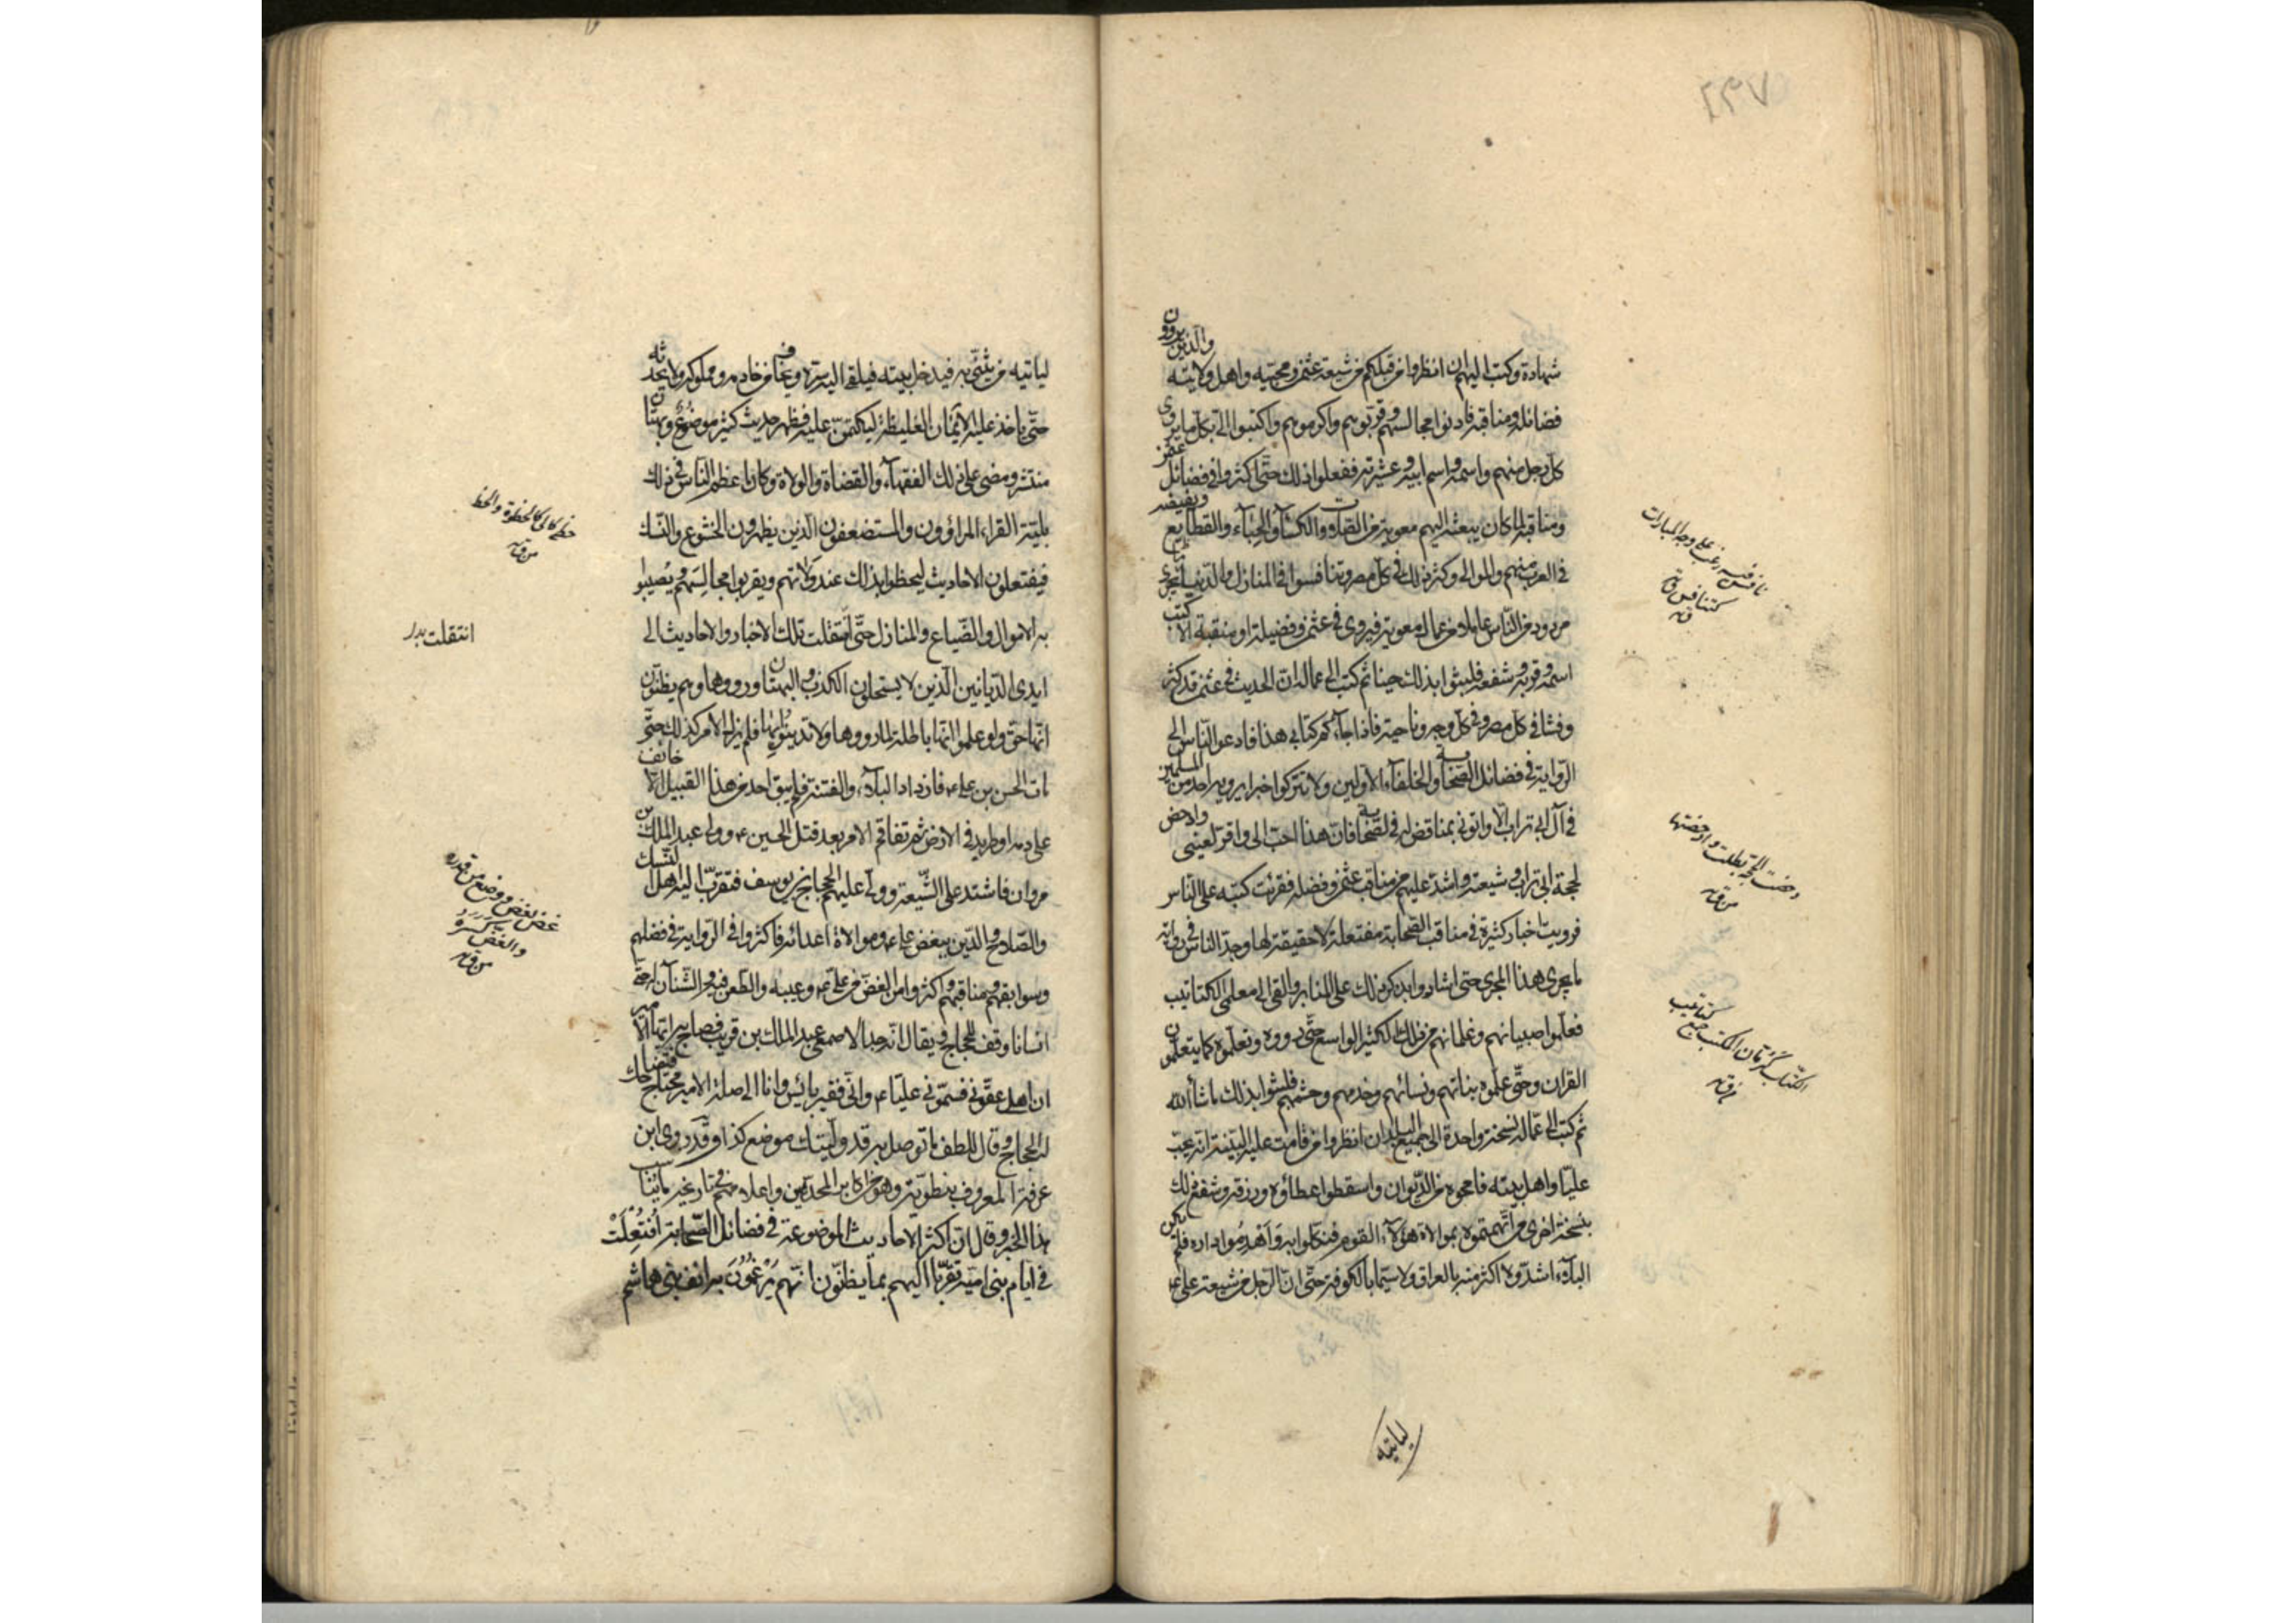 والذين يروون
شهادة وكتب اليهم ان انظروا من قبلكم من شيعة عثمن ومحبيه واهل ولايته
فضائله ومناقبه فادنوا مجالسهم وقربوهم واكرموهم واكتبوا الى بكل ما يروى
كل رجل منهم واسمه واسم ابيه وعشيرته ففعلوا ذلك حتى اكثروا فى فضائل عثمن
ومناقبه لما كان يبعثه اليهم معوية من الصلات والكساء والحباء والقطايع ويفيضه
فى العرب منهم والموالى وكثر ذلك فى كل مصر وتنافسوا فى المنازل والدنيا
مردود من الناس عاملا من عمال معوية فيروى فى عثمن فضيلة او منقبة الا كتب
اسمه وقربه وشفعه فلبثوا بذلك حينا ثم كتب الى عماله ان الحديث فى عثمن قد كثر
وفشا فى كل مصر وفى كل وجه وناحية فاذا جاءكم كتابى هذا فادعوا الناس الى
الرواية فى فضائل الصحابة والخلفاء الاولين ولا تتركوا خبرا يرويه احد من المسلمين
فى آل ابى تراب الا واتونى بمناقض له فى الصحابة فان هذا احب الى واقر لعينى وادحض
لحجة ابى تراب وشيعته واشد عليهم من مناقب عثمن وفضله فقرئت كتبه على الناس
فرويت اخبار كثيرة فى مناقب الصحابة مفتعلة لا حقيقة لها وجد الناس فى رواية
ما يجرى هذا المجرى حتى اشادوا بذكر ذلك على المنابر والقى الى معلمى الكتاتيب
فعلموا صبيانهم وغلمانهم من ذلك الكثير الواسع حتى رووه وتعلموه كما يتعلمون
القران وحتى علموه بناتهم ونسائهم وخدمهم وحشمهم فلبثوا بذلك ما شاء الله
ثم كتب الى عماله نسخة واحدة الى جميع البلدان انظروا من قامت عليه البينة انه يحب
عليا واهل بيته فامحوه من الديوان واسقطوا عطاؤه ورزقه وشفع ذلك
بنسخة اخرى من اتهمتموه بموالاة هؤلاء القوم فنكلوا به واهدموا داره فلم يكن
البلاء اشد ولا اكثر منه بالعراق ولا سيما بالكوفة حتى ان الرجل من شيعة على ع
ليأتيه
نافس فيه رغب على وجه المبارات
كتنافس
ق
دحضت الحجة بطلت وادحضتها
من ق
كتاتيب
الكتاب كرمان المكتب ج
ق
ليأتيه من يثق به فيدخل بيته فيلقى اليه سره ويخاف من خادمه ومملوكه ولا يحدثه
حتى ياخذ عليه الايمان الغليظة ليكتمن عليه فظهر حديث كثير موضوع وبهتان
منتشر ومضى على ذلك الفقهاء والقضاة والولاة وكان اعظم الناس فى ذلك
بلية القراء المراؤون والمستضعفون الذين يظهرون الخشوع والنسك
فيفتعلون الاحاديث ليحظوا بذلك عند ولاتهم ويقربوا مجالسهم ويصيبوا
به الاموال والضياع والمنازل حتى انتقلت تلك الاخبار والاحاديث الى
ايدى الديانين الذين لا يستحلون الكذب والبهتان ورووها وهم يظنون
انها حق ولو علموا انها باطلة لما رووها ولا تدينوا بها فلم يزل الامر كذلك حتى
مات الحسن بن على ع فازداد البلاء والفتنة فلم يبق احد من هذا القبيل الا خائف
على دمه او طريد فى الارض ثم تفاقم الامر بعد قتل الحسين ع وولى عبد الملك بن
مروان فاشتد على الشيعة وولى عليهم الحجاج بن يوسف فتقرب اليه اهل النسك
والصلاح والدين ببغض على ع وموالاة اعدائه فاكثروا فى الرواية فى فضلهم
وسوابقهم ومناقبهم واكثروا من الغض من على ع وعيبه والطعن فيه والشنآن له حتى
انسانا وقف للحجاج ويقال انه جد الاصمعى عبد الملك بن قريب فصاح به ايها الامير
ان اهلى عقونى فسمونى عليا ع وانى فقير بائس وانا الى صلة الامير محتاج فتضاحك
له الحجاج وقال للطف ما توصل به قد وليتك موضع كذا وقد روى ابن
عرفة المعروف بنفطويه وهو من اكابر المحدثين واعلامهم فى تاريخه ما يناسب
هذا الخبر وقال ان اكثر الاحاديث الموضوعة فى فضائل الصحابة افتعلت
فى ايام بنى امية تقربا اليهم بما يظنون انهم يرغمون به انف بنى هاشم
من ق
انتقلت بدل
غض نقص ووضع من قدره
من ق